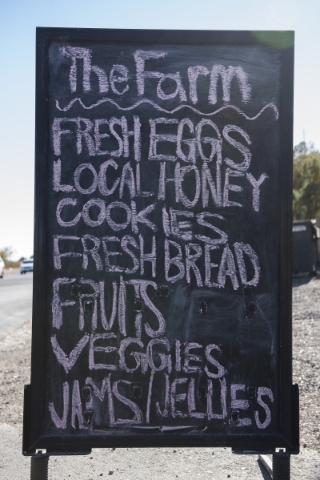 The Farm
FRESH EGGS
LOCAL HONEY
COOKIES
FRESH BREAD
FRUITS
VEGGIES
JAMS/JELLIES